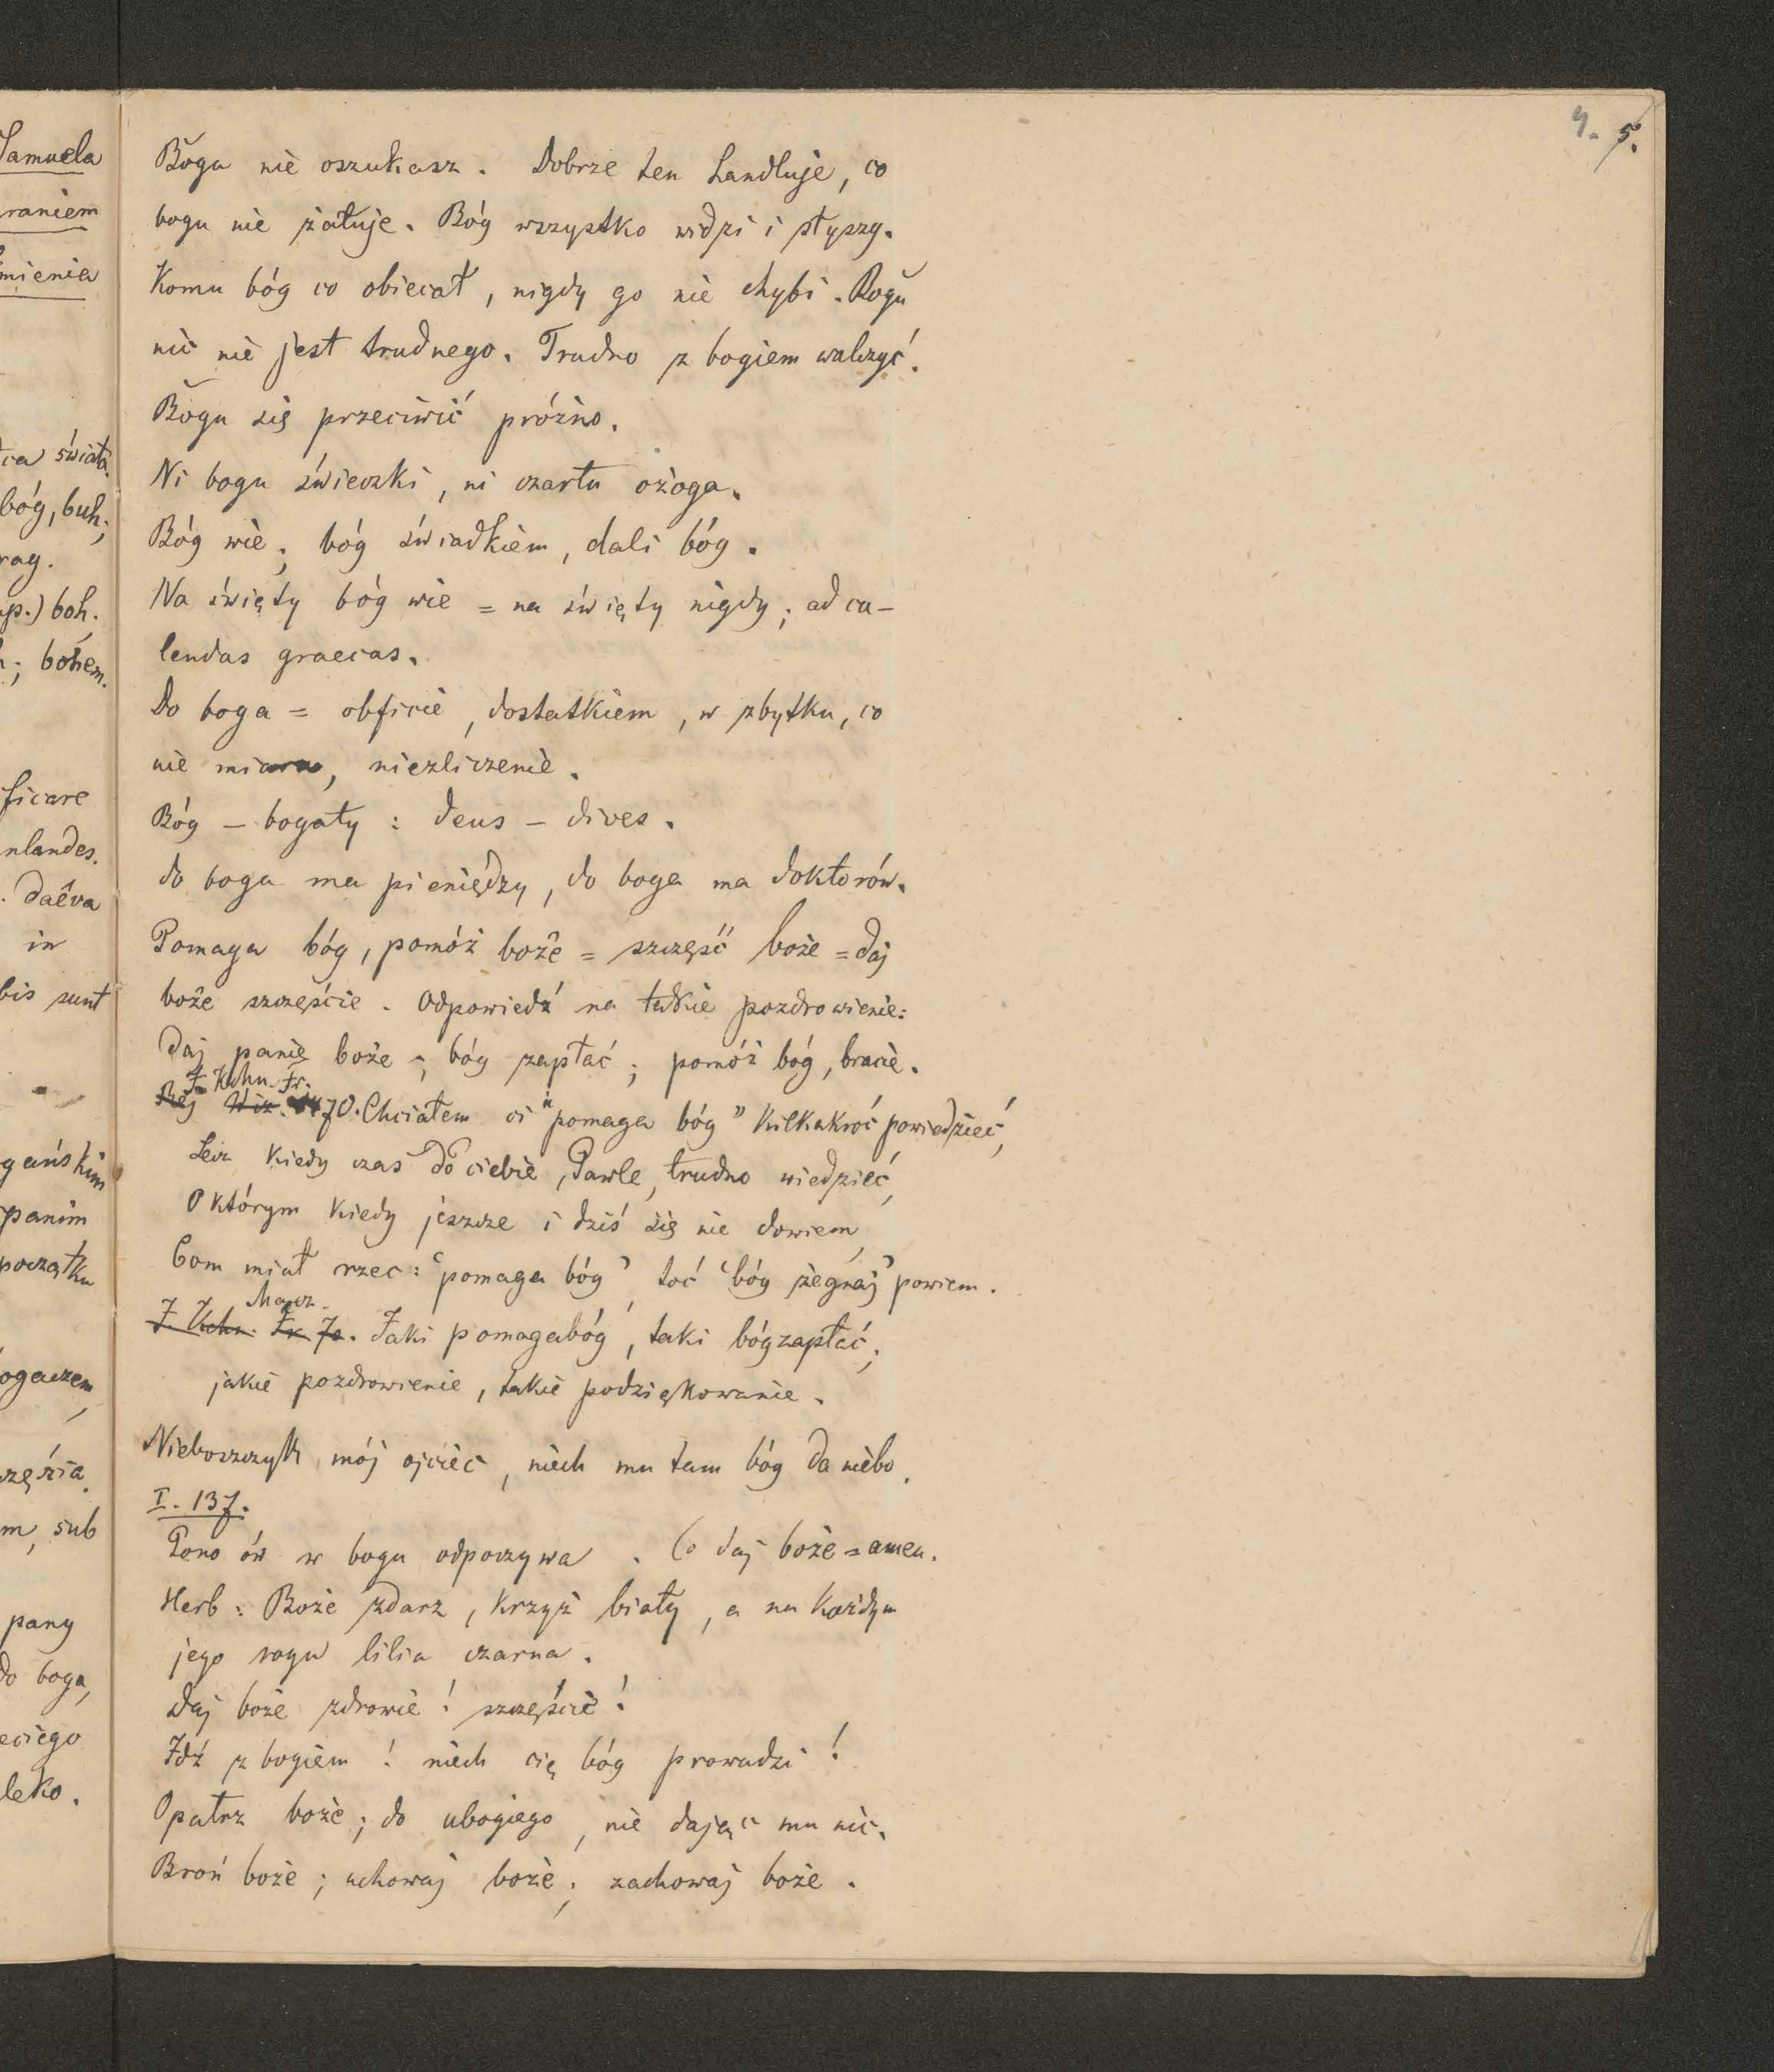 Samuela
raniem
mienia
ca świata.
bóg, buh;
rag.
p.) boh.
; bohem.
ficare
nlandes.
. daêva
in
bis sunt
gańskim
panim
początku
ogaczem,
częścia.
m, sub
pany
do boga,
eciego
leko.
4. 5.
Bogu nie oszukasz. Dobrze ten handluje, co
bogu nie żałuje. Bóg wszystko widzi i słyszy.
Komu bóg co obiecał, nigdy go nie chybi. Bogu
nic nie jest trudnego. Trudno z bogiem walczyć.
Bogu się przeciwić próżno.
Ni bogu świeczki, ni czartu ożoga.
Bóg wie; bóg świadkiem, dali bóg.
Na święty bóg wie = na święty nigdy; ad ca-
lendas graecas.
Do boga = obficie, dostatkiem, w zbytku, co
nie miara, niezliczenie.
Bóg – bogaty : deus – dives.
do boga ma pieniędzy, do boga ma doktorów.
Pomaga bóg, pomóż boże = szczęść boże = daj
boże szczęście. Odpowiedź na takie pozdrowienie:
Daj panie boże; bóg zapłać; pomóż bóg, bracie.
J. Kchn. Fr.
Rej Wiz. 70. Chciałem ci "pomaga bóg" kilkakroć powiedzieć,
Lecz kiedy czas do ciebie, Pawle, trudno wiedzieć,
O którym kiedy jeszcze i dziś się nie dowiem,
Com miał rzec: 'pomaga bóg', toć 'bóg żegnaj' powiem.
Mącz.
J. Kchn. Fr. 70. Jaki pomagabóg, taki bógzapłać;
jakie pozdrowienie, takie podziękowanie.
Nieboszczyk mój ojciec, niech mu tam bóg da niebo.
I. 137.
Pono ów w bogu odpoczywa. Co daj boże = amen.
Herb: Boże zdarz, krzyż biały, a na każdym
jego rogu lilia czarna.
Daj boże zdrowie! szczęście!
Idź z bogiem! niech cię bóg prowadzi!
Opatrz boże; do ubogiego, nie dając mu nic.
Broń boże; uchowaj boże; zachowaj boże.